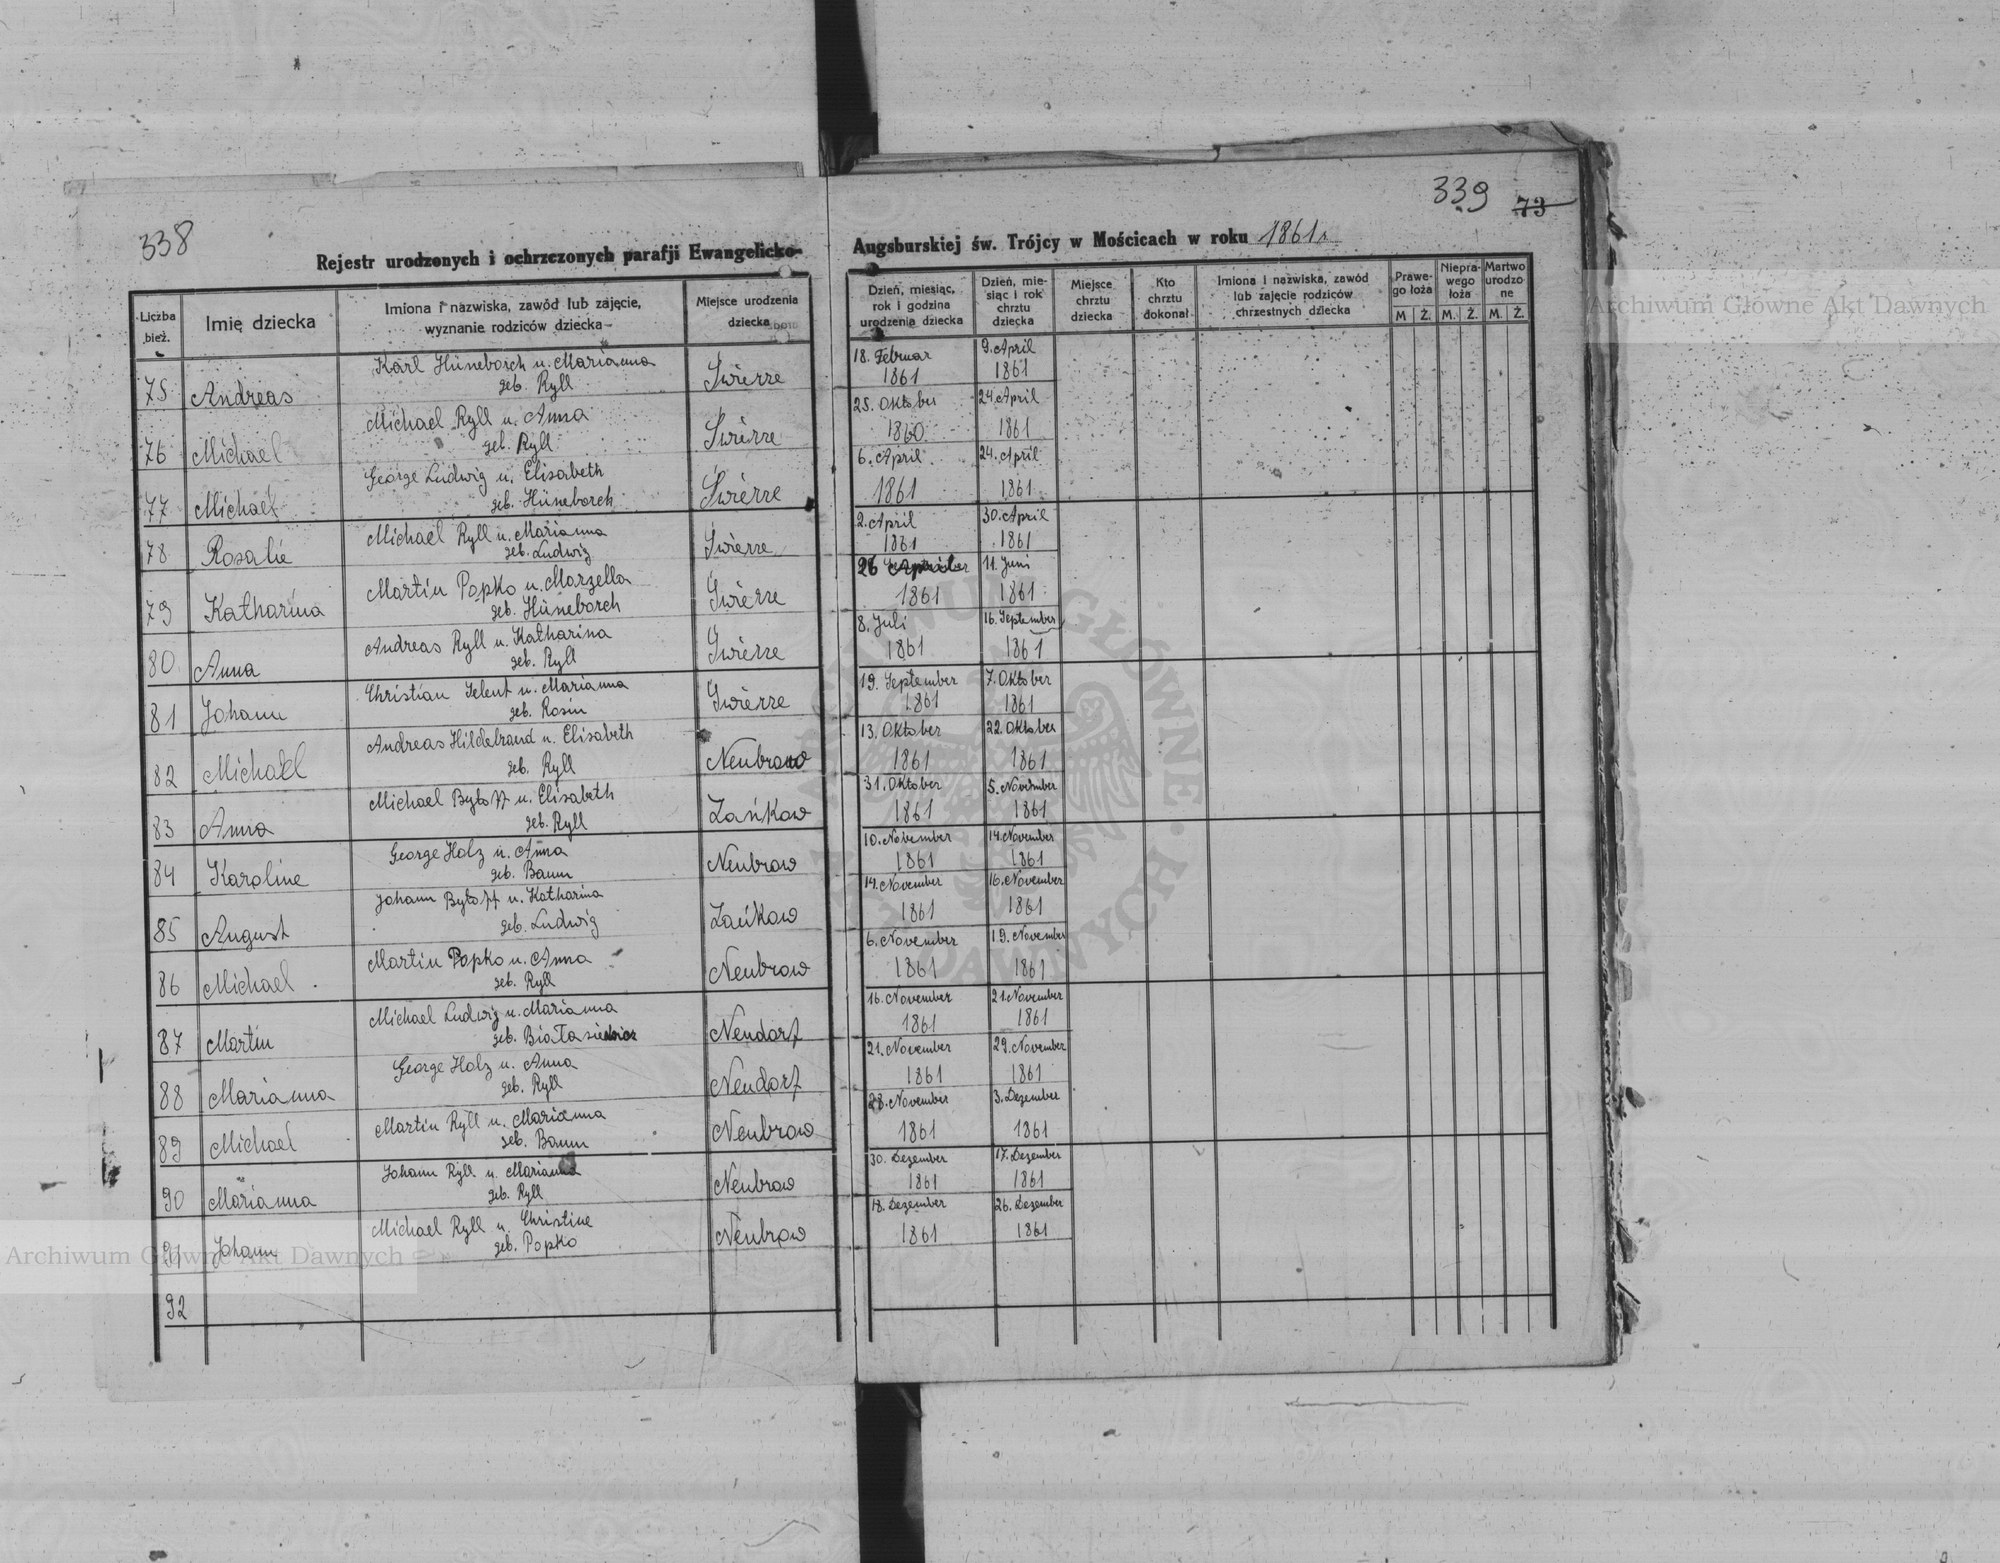 338
339 73
Rejestr urodzonych i ochrzczonych parafji Ewangelicko-
Augsburskiej św. Trójcy w Mościcach w roku 1861 r.
Liczba bież.
Imię dziecka
Imiona i nazwiska, zawód lub zajęcie, wyznanie rodziców dziecka
Miejsce urodzenia dziecka
Dzień, miesiąc, rok i godzina urodzenia dziecka
Dzień, miesiąc i rok chrztu dziecka
Miejsce chrztu dziecka
Kto chrztu dokonał
Imiona i nazwiska, zawód lub zajęcie rodziców chrzestnych dziecka
Prawego łoża
Nieprawego łoża
Martwo urodzone
M. Ż. M. Ż. M. Ż.
75 Andreas Karl Hüneborch u. Marianna geb. Ryll Świerże 18. Februar 1861 9. April 1861
76 Michael Michael Ryll u. Anna geb. Ryll Świerże 25. Oktober 1860 24. April 1861
77 Michael George Ludwig u. Elisabeth geb. Hüneborch Świerże 6. April 1861 24. April 1861
78 Rosalie Michael Ryll u. Marianna geb. Ludwig Świerże 2. April 1861 30. April 1861
79 Katharina Martin Popko u. Marzella geb. Hüneborch Świerże 26 1861 11. Juni 1861
80 Anna Andreas Ryll u. Katharina geb. Ryll Świerże 8. Juli 1861 16. September 1861
81 Johann Christian Selent u. Marianna geb. Rosin Świerże 19. September 1861 7. Oktober 1861
82 Michael Andreas Hildebrand u. Elisabeth geb. Ryll Neubrow 13. Oktober 1861 22. Oktober 1861
83 Anna Michael Bytoff u. Elisabeth geb. Ryll Zańkow 31. Oktober 1861 5. November 1861
84 Karoline George Holz u. Anna geb. Baum Neubrow 10. November 1861 14. November 1861
85 August Johann Bytoff u. Katharina geb. Ludwig Zańkow 14. November 1861 16. November 1861
86 Michael Martin Popko u. Anna geb. Ryll Neubrow 6. November 1861 19. November 1861
87 Martin Michael Ludwig u. Marianna geb. Neudorf 16. November 1861 21. November 1861
88 Marianna George Holz u. Anna geb. Ryll Neudorf 21. November 1861 29. November 1861
89 Michael Martin Ryll u. Marianna geb. Baum Neubrow 28. November 1861 3. Dezember 1861
90 Marianna Johann Ryll u. Marianna geb. Ryll Neubrow 30. Dezember 1861 17. Dezember 1861
91 Johann Michael Ryll u. Christine geb. Popko Neubrow 18. Dezember 1861 26. Dezember 1861
92
Archiwum Główne Akt Dawnych
Archiwum Główne Akt Dawnych
ARCHIWUM GŁÓWNE AKT DAWNYCH